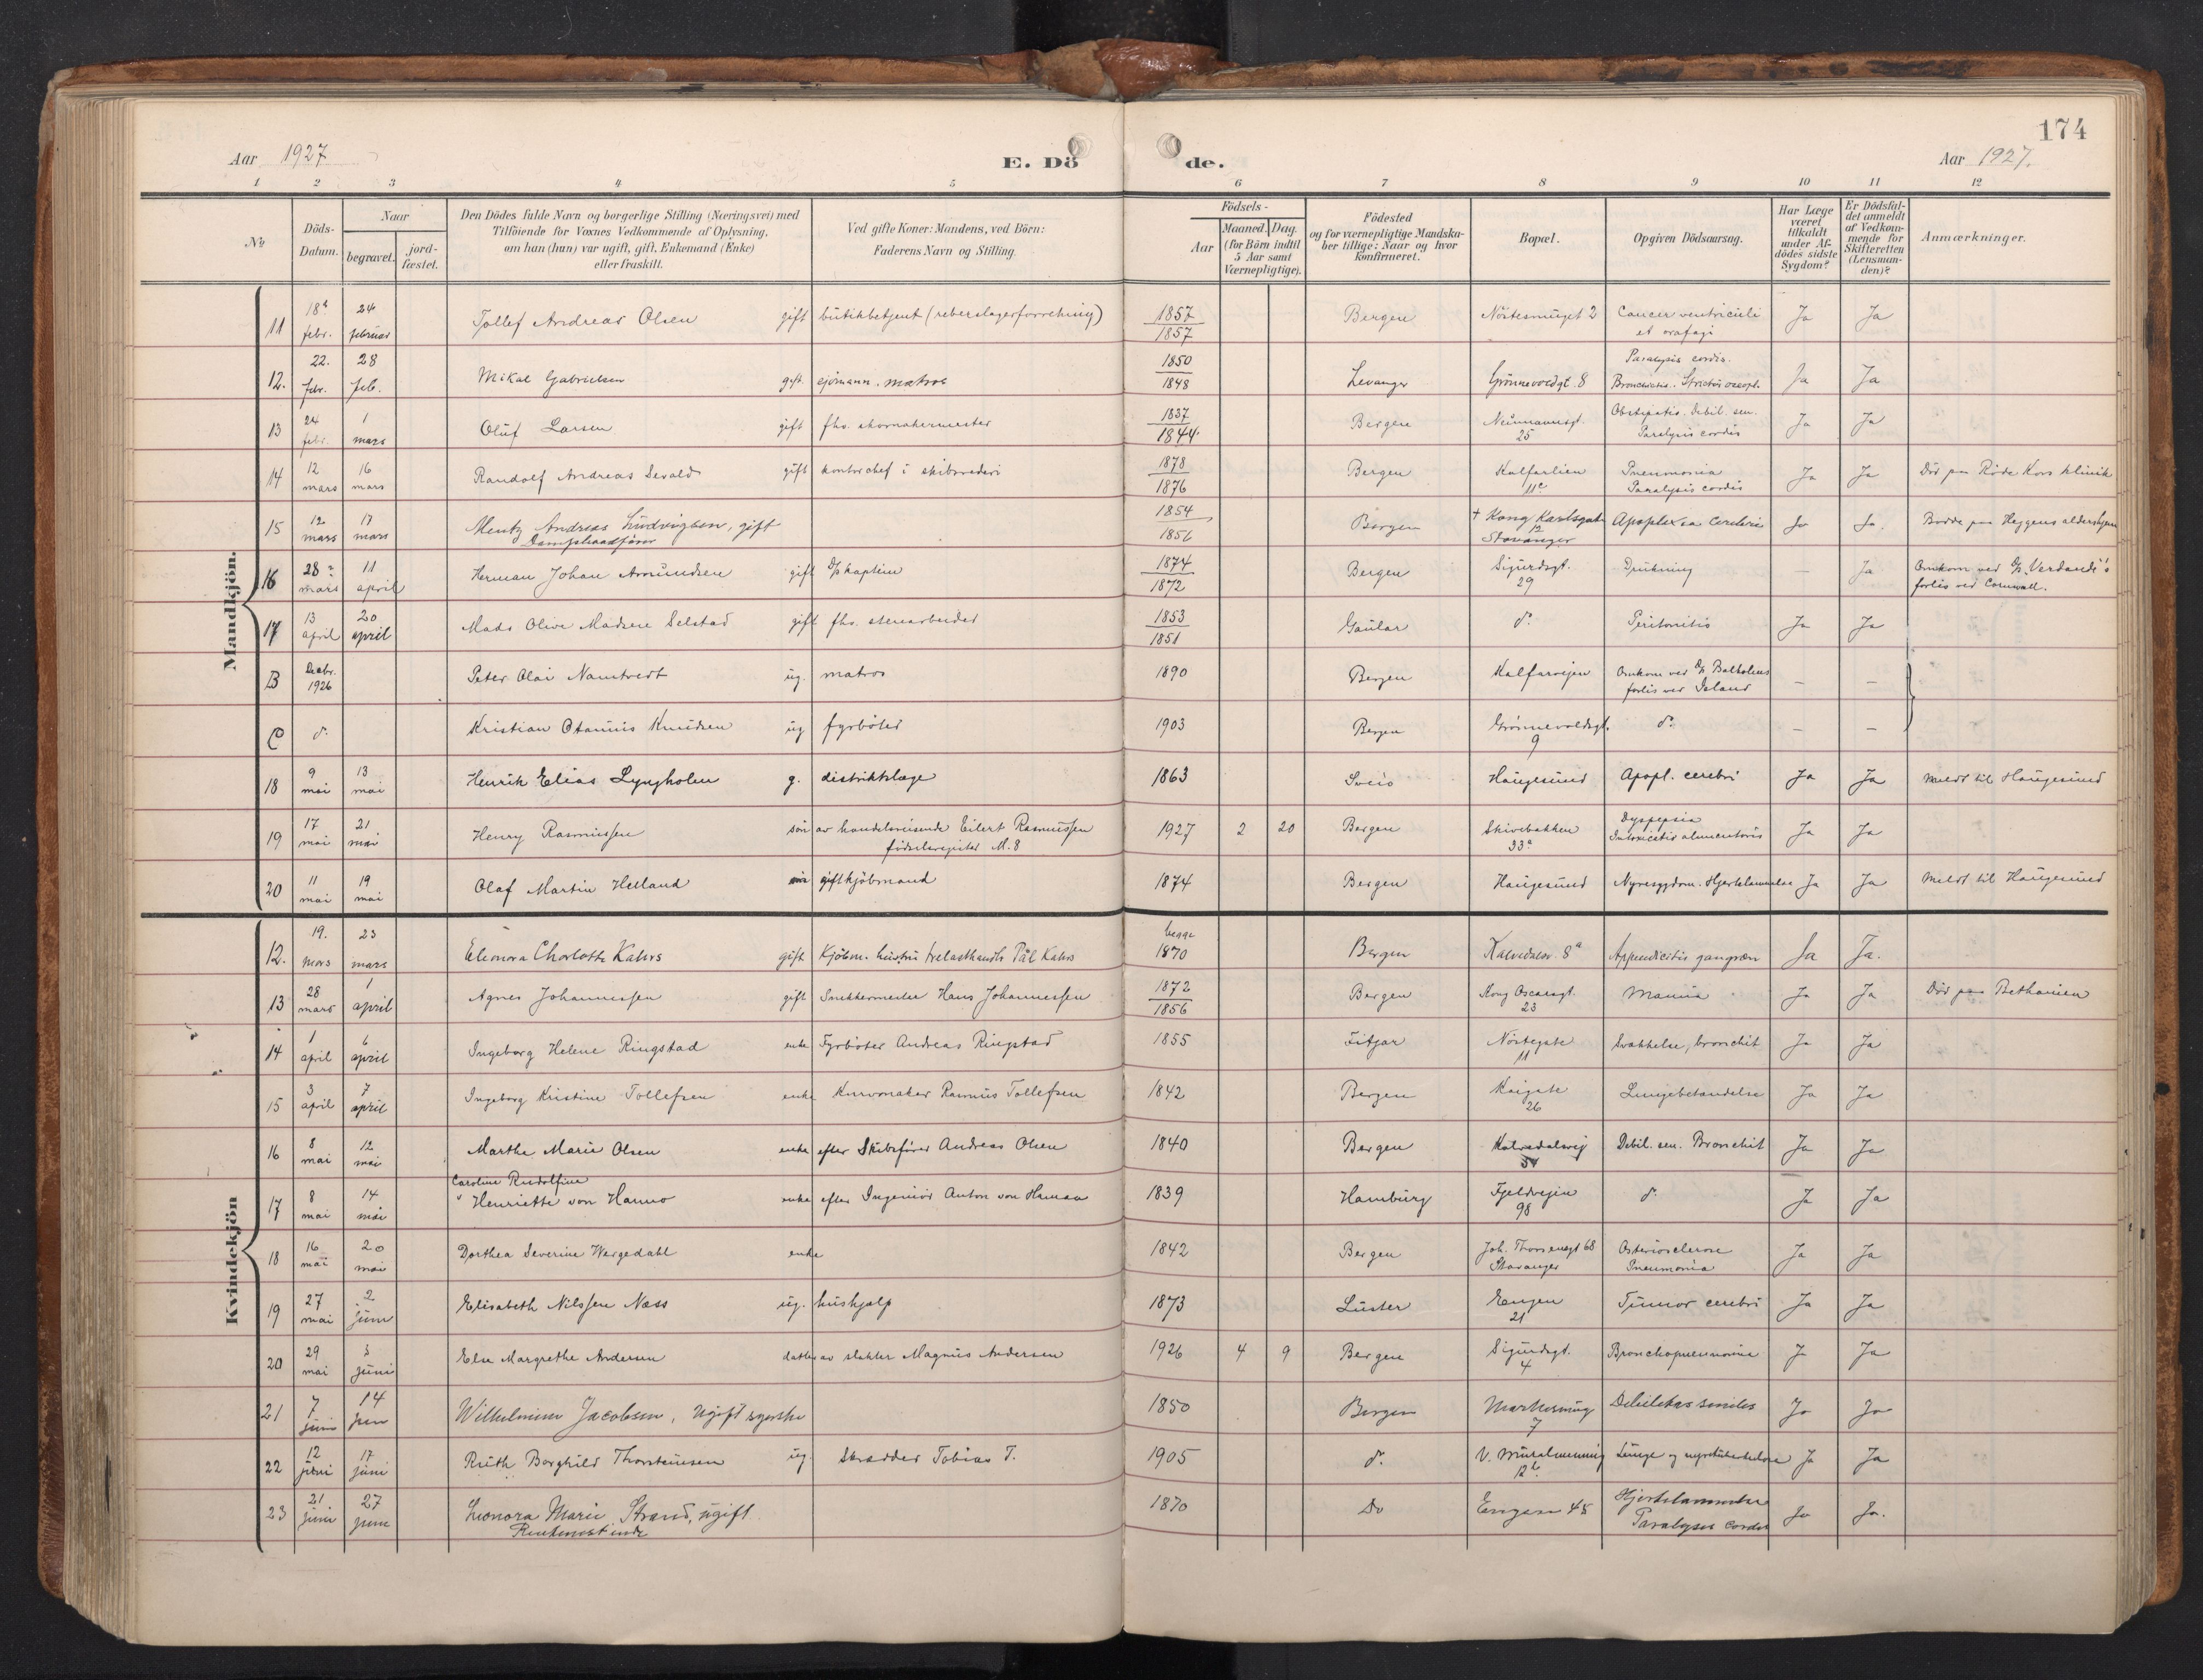 174
Aar 1927
E. Dö de.
Aar 1927.
1 2 3 4 5 6 7 8 9 10 11 12
№
Döds-Datum.
Naar
begravet.
jord-fæstet.
Den Dödes fulde Navn og borgerlige Stilling (Næringsvei) med
Tilföiende for Voxnes Vedkommende af Oplysning,
om han (hun) var ugift, gift, Enkemand (Enke)
eller fraskilt.
Ved gifte Koner: Mandens, ved Börn:
Faderens Navn og Stilling.
Födsels-
Aar
Maaned. Dag.
(for Börn indtil
5 Aar samt
Værnepligtige).
Födested
og for værnepligtige Mandska-
ber tillige: Naar og hvor
konfirmeret.
Bopæl.
Opgiven Dödsaarsag.
Har Læge
været
tilkaldt
under Af-
dödes sidste
Sygdom?
Er Dödsfal-
det anmeldt
af Vedkom-
mende for
Skifteretten
(Lensman-
den)?
Anmærkninger.
Mandkjön.
11 18 febr. 24 februar Tollef Andreas Olsen gift butikbetjent (reberslagerforretning) 1857 1857 Bergen Nöstesmuget 2 Cancer ventriculi et Ja Ja
12. 22. febr. 28 feb. Mikal Gabrielsen gift sjömann. matros 1850 1848 Levanger Grönnevoldgt. 8 Paralysis cordis. Ja Ja
13 24 febr. 1 mars Oluf Larsen gift fhv. skomakermester 1837 1844. Bergen 25 Obstipatio. Debil. sen. Paralysis cordis Ja Ja
14 12 mars 16 mars Randolf Andreas Sevald gift kontorchef i skibsrederi 1878 1876 Bergen Kalfarlien 11c Pneumonia Paralysis cordis Ja Ja Död paa Röde Kors klinik
15 12 mars 17 mars Mentz Andreas Ludvigsen, gift 1854 1856 Bergen + Kong Karlsgate 12 Stavanger Apoplexia Cerebri Ja Ja. Bodde paa aldershjem
16 28 mars 11 april Herman Johan Amundsen gift D/s kaptein 1874 1872 Bergen Sigurdsgt. 29 Drukning — Ja Omkom ved D/s "Verdandi"'s forlis ved Cornwall.
17 13 april 20 april Mads Olive Madsen Selstad gift fhv. stenarbeider 1853 1851 Gaular do Peritonitis Ja Ja
B Decbr. 1926 Peter Olai Namtvedt ug. matros 1890 Bergen Kalfarveien Omkom ved D/s Balholms forlis ved Island — —
C do Kristian Otanius Knudsen ug fyrböter 1903 Bergen Grönnevoldsgt. 9 do — —
18 9 mai 13 mai Henrik Elias Lyngholm g. distriktslæge 1863 Sveio Haugesund Apopl. cerebri Ja Ja Meldt til Haugesund
19 17 mai 21 mai Henry Rasmussen sön av handelsreisende Eilert Rasmussen födselsregister M. 8 1927 2 20 Bergen Skivebakken 33a Dyspepsia Ja Ja
20 11 mai 19 mai Olaf Martin Helland gift kjöbmand 1874 Bergen Haugesund Nyresygdom. Hjertelammelse Ja Ja Meldt til Haugesund
Kvindekjön
12. 19. mars 23 mars Elenora Charlotte Kahrs gift Kjöbm. hustru Pål Kahrs begge 1870 Bergen Kalvedalsv. 8a Appendicitis gangræn Ja Ja.
13 28 mars 1 april Agnes Johannessen gift Snekkermester Hans Johannessen 1872 1856 Bergen Kong Oscarsgt. 23 Mania Ja Ja Död paa Bethanien
14 1 april 6 april Ingeborg Helene Ringstad enke Fyrböter Andreas Ringstad 1855 Fitjar Nöstegate 11 Svækkelse, bronchit Ja Ja
15 3 april 7 april Ingeborg Kristine Tollefsen enke Kurvmaker Rasmus Tollefsen 1842 Bergen Kaigate 26 Lungebetændelse Ja Ja
16 8 mai 12 mai Marthe Marie Olsen enke efter Skibsförer Andreas Olsen 1840 Bergen Kalvedalsvej Debil. sen. Bronchit Ja Ja
17 8 mai 14 mai Caroline Rudolfine Henriette von Hanno enke efter Ingeniör Anton von Hanno 1839 Hamburg Fjeldveien 98 do Ja Ja
18 16 mai 20 mai Dorthea Severine Wergedahl enke 1842 Bergen Joh. Thorsensgt 68 Stavanger Pneumonia Ja Ja
19 27 mai 2 juni Elisabeth Nilssen Næss ug. hushjælp 1873 Luster Engen 21 Tumor cerebri Ja Ja
20 29 mai 3 juni Else Margrethe Andersen datter av slakter Magnus Andersen 1926 4 9 Bergen Sigurdsgt. 4 Bronchopneumonia Ja Ja
21 7 juni 14 juni Wilhelmine Jacobsen, ugift syerske 1850 Bergen 7 Debilitas senilis Ja Ja
22 12 juni 17 juni Ruth Borghild Thorsteinsen ug. Skrædder Tobias T. 1905 do V. Muralmenning 12b Lunge og nyretuberkulose Ja Ja
23 21 juni 27 juni Leonora Marie Strand, ugift. 1870 Do Engen 45 Hjertelammelse Paralysis cordis Ja Ja.